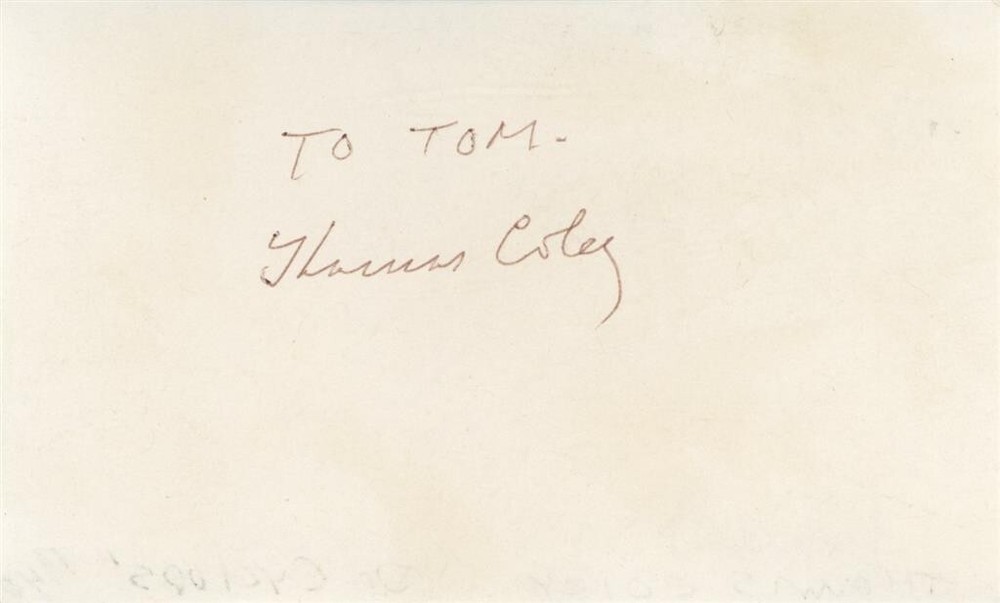 TO TOM-
Thomas Coley